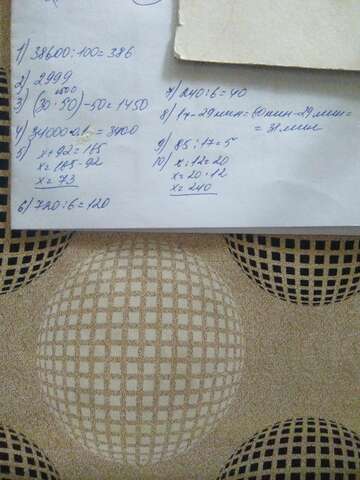 1) 38600:100=386
2) 2999
1500
3) (30·50)-50=1450
4) 34000·0,1=3400
5) x+92=165
x=165-92
x=73
6) 720:6=120
7) 240:6=40
8) 1ч-29мин=60мин-29мин=
=31мин
9) 85:17=5
10) x:12=20
x=20·12
x=240